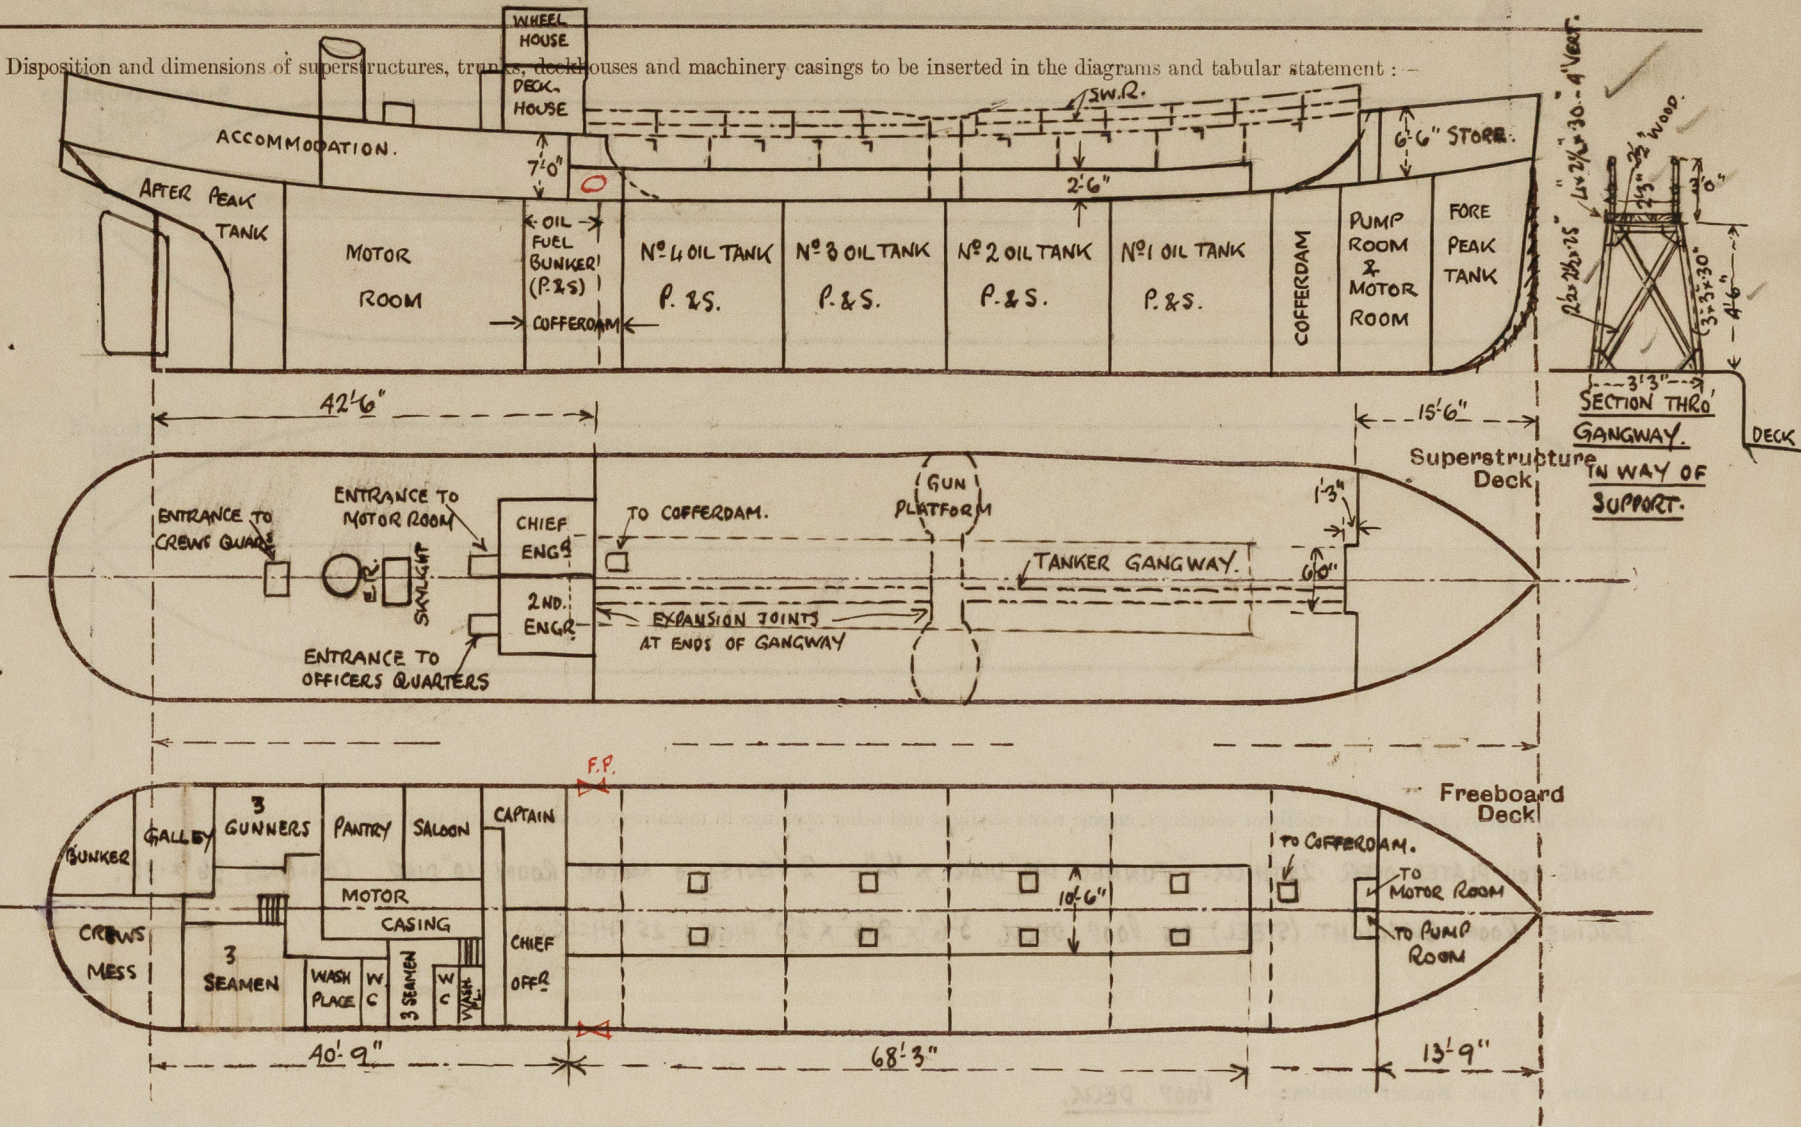 Disposition and dimensions of superstructures, trunks, deckhouses and machinery casings to be inserted in the diagrams and tabular statement :—
WHEEL
HOUSE
DECK
HOUSE
SW.R.
ACCOMMODATION.
7'-0"
2'-6"
6'-6" STORE.
AFTER PEAK
TANK
MOTOR
ROOM
OIL
FUEL
BUNKER
(P.&S)
COFFERDAM
Nº 4 OIL TANK
P. & S.
Nº 3 OIL TANK
P. & S.
Nº 2 OIL TANK
P. & S.
Nº 1 OIL TANK
P. & S.
COFFERDAM
PUMP
ROOM
&
MOTOR
ROOM
FORE
PEAK
TANK
WOOD.
3'-0"
4'-6"
3'3"
SECTION THRO'
GANGWAY.
IN WAY OF
SUPPORT.
DECK
42'-6"
15'-6"
Superstructure
Deck
ENTRANCE TO
CREWS QUAR
ENTRANCE TO
MOTOR ROOM
E.R.
SKYLIGHT
CHIEF
ENGR
2ND.
ENGR
ENTRANCE TO
OFFICERS QUARTERS
TO COFFERDAM.
GUN
PLATFORM
TANKER GANGWAY.
EXPANSION JOINTS
AT ENDS OF GANGWAY
1'-3"
6'0"
F.P.
Freeboard
Deck
BUNKER
GALLEY
3
GUNNERS
PANTRY
SALOON
CAPTAIN
MOTOR
CASING
CREWS
MESS
3
SEAMEN
WASH
PLACE
W.
C
3 SEAMEN
W
C
WASH
PL.
CHIEF
OFFR
10'-6"
TO COFFERDAM.
TO
MOTOR ROOM
TO PUMP
ROOM
40'-9"
68'-3"
13'-9"
POOP DECK.